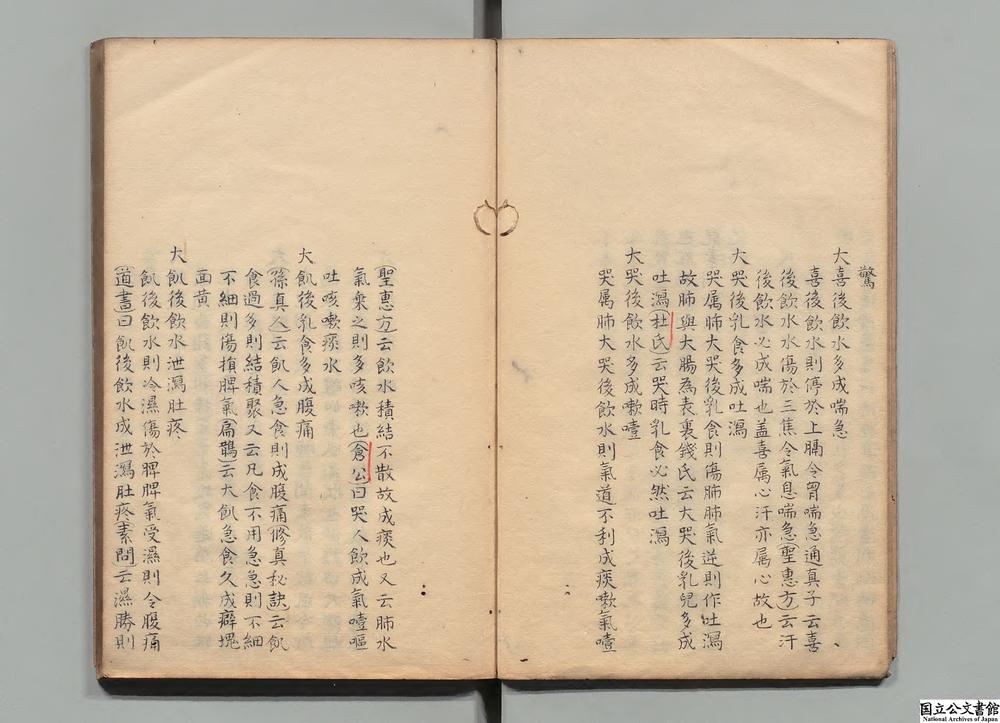 驚
大喜後飲水多成喘急
喜後飲水則停於上膈令胷喘急通真子云喜
後飲水水傷於三焦令氣息喘急聖惠方云汗
後飲水必成喘也蓋喜属心汗亦属心故也
大哭後乳食多成吐瀉
哭属肺大哭後乳食則傷肺肺氣逆則作吐瀉
故肺與大腸為表裏錢氏云大哭後乳兒多成
吐瀉杜氏云哭時乳食必然吐瀉
大哭後飲水多成嗽噎
哭属肺大哭後飲水則氣道不利成痰嗽氣噎
聖惠方云飲水積結不散故成痰也又云肺水
氣乗之則多咳嗽也倉公曰哭人飲成氣噎嘔
吐咳嗽痰水
大飢後乳食多成腹痛
孫真人云飢人急食則成腹痛修真秘訣云飢
食過多則結積聚又云凡食不用急急則不細
不細則傷損脾氣扁鵲云大飢急食久成癖塊
面黄
大飢後飲水泄瀉肚疼
飢後飲水則冷濕傷於脾脾氣受濕則令腹痛
道書曰飢後飲水成泄瀉肚疼素問云濕勝則
国立公文書館
National Archives of Japan